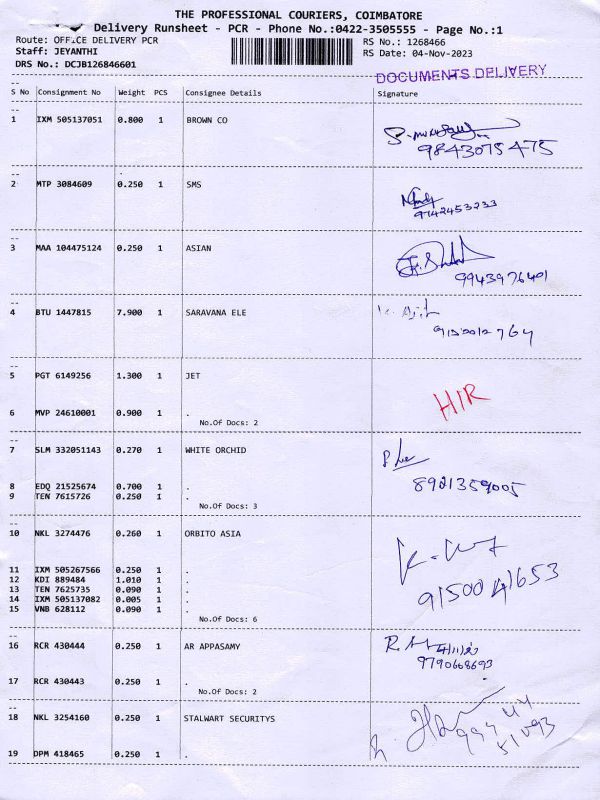 THE PROFESSIONAL COURIERS, COIMBATORE
Delivery Runsheet - PCR - Phone No.:0422-3505555 - Page No.:1
Route: OFFICE DELIVERY PCR
RS No.: 1268466
Staff: JEYANTHI
RS Date: 04-Nov-2023
DRS No.: DCJB126846601
DOCUMENTS DELIVERY
S No Consignment No Weight PCS Consignee Details Signature
1 IXM 505137051 0.800 1 BROWN CO
9843075475
2 MTP 3084609 0.250 1 SMS
9142453233
3 MAA 104475124 0.250 1 ASIAN
9943976401
4 BTU 1447815 7.900 1 SARAVANA ELE
5 PGT 6149256 1.300 1 JET
HIR
6 MVP 24610001 0.900 1 .
No.Of Docs: 2
7 SLM 332051143 0.270 1 WHITE ORCHID
8921359005
8 EDQ 21525674 0.700 1 .
9 TEN 7615726 0.250 1 .
No.Of Docs: 3
10 NKL 3274476 0.260 1 ORBITO ASIA
11 IXM 505267566 0.250 1 .
12 KDI 889484 1.010 1 .
13 TEN 7625735 0.090 1 .
14 IXM 505137082 0.005 1 .
15 VNB 628112 0.090 1 .
9150041653
No.Of Docs: 6
16 RCR 430444 0.250 1 AR APPASAMY
9790668693
17 RCR 430443 0.250 1 .
No.Of Docs: 2
18 NKL 3254160 0.250 1 STALWART SECURITYS
19 DPM 418465 0.250 1 .